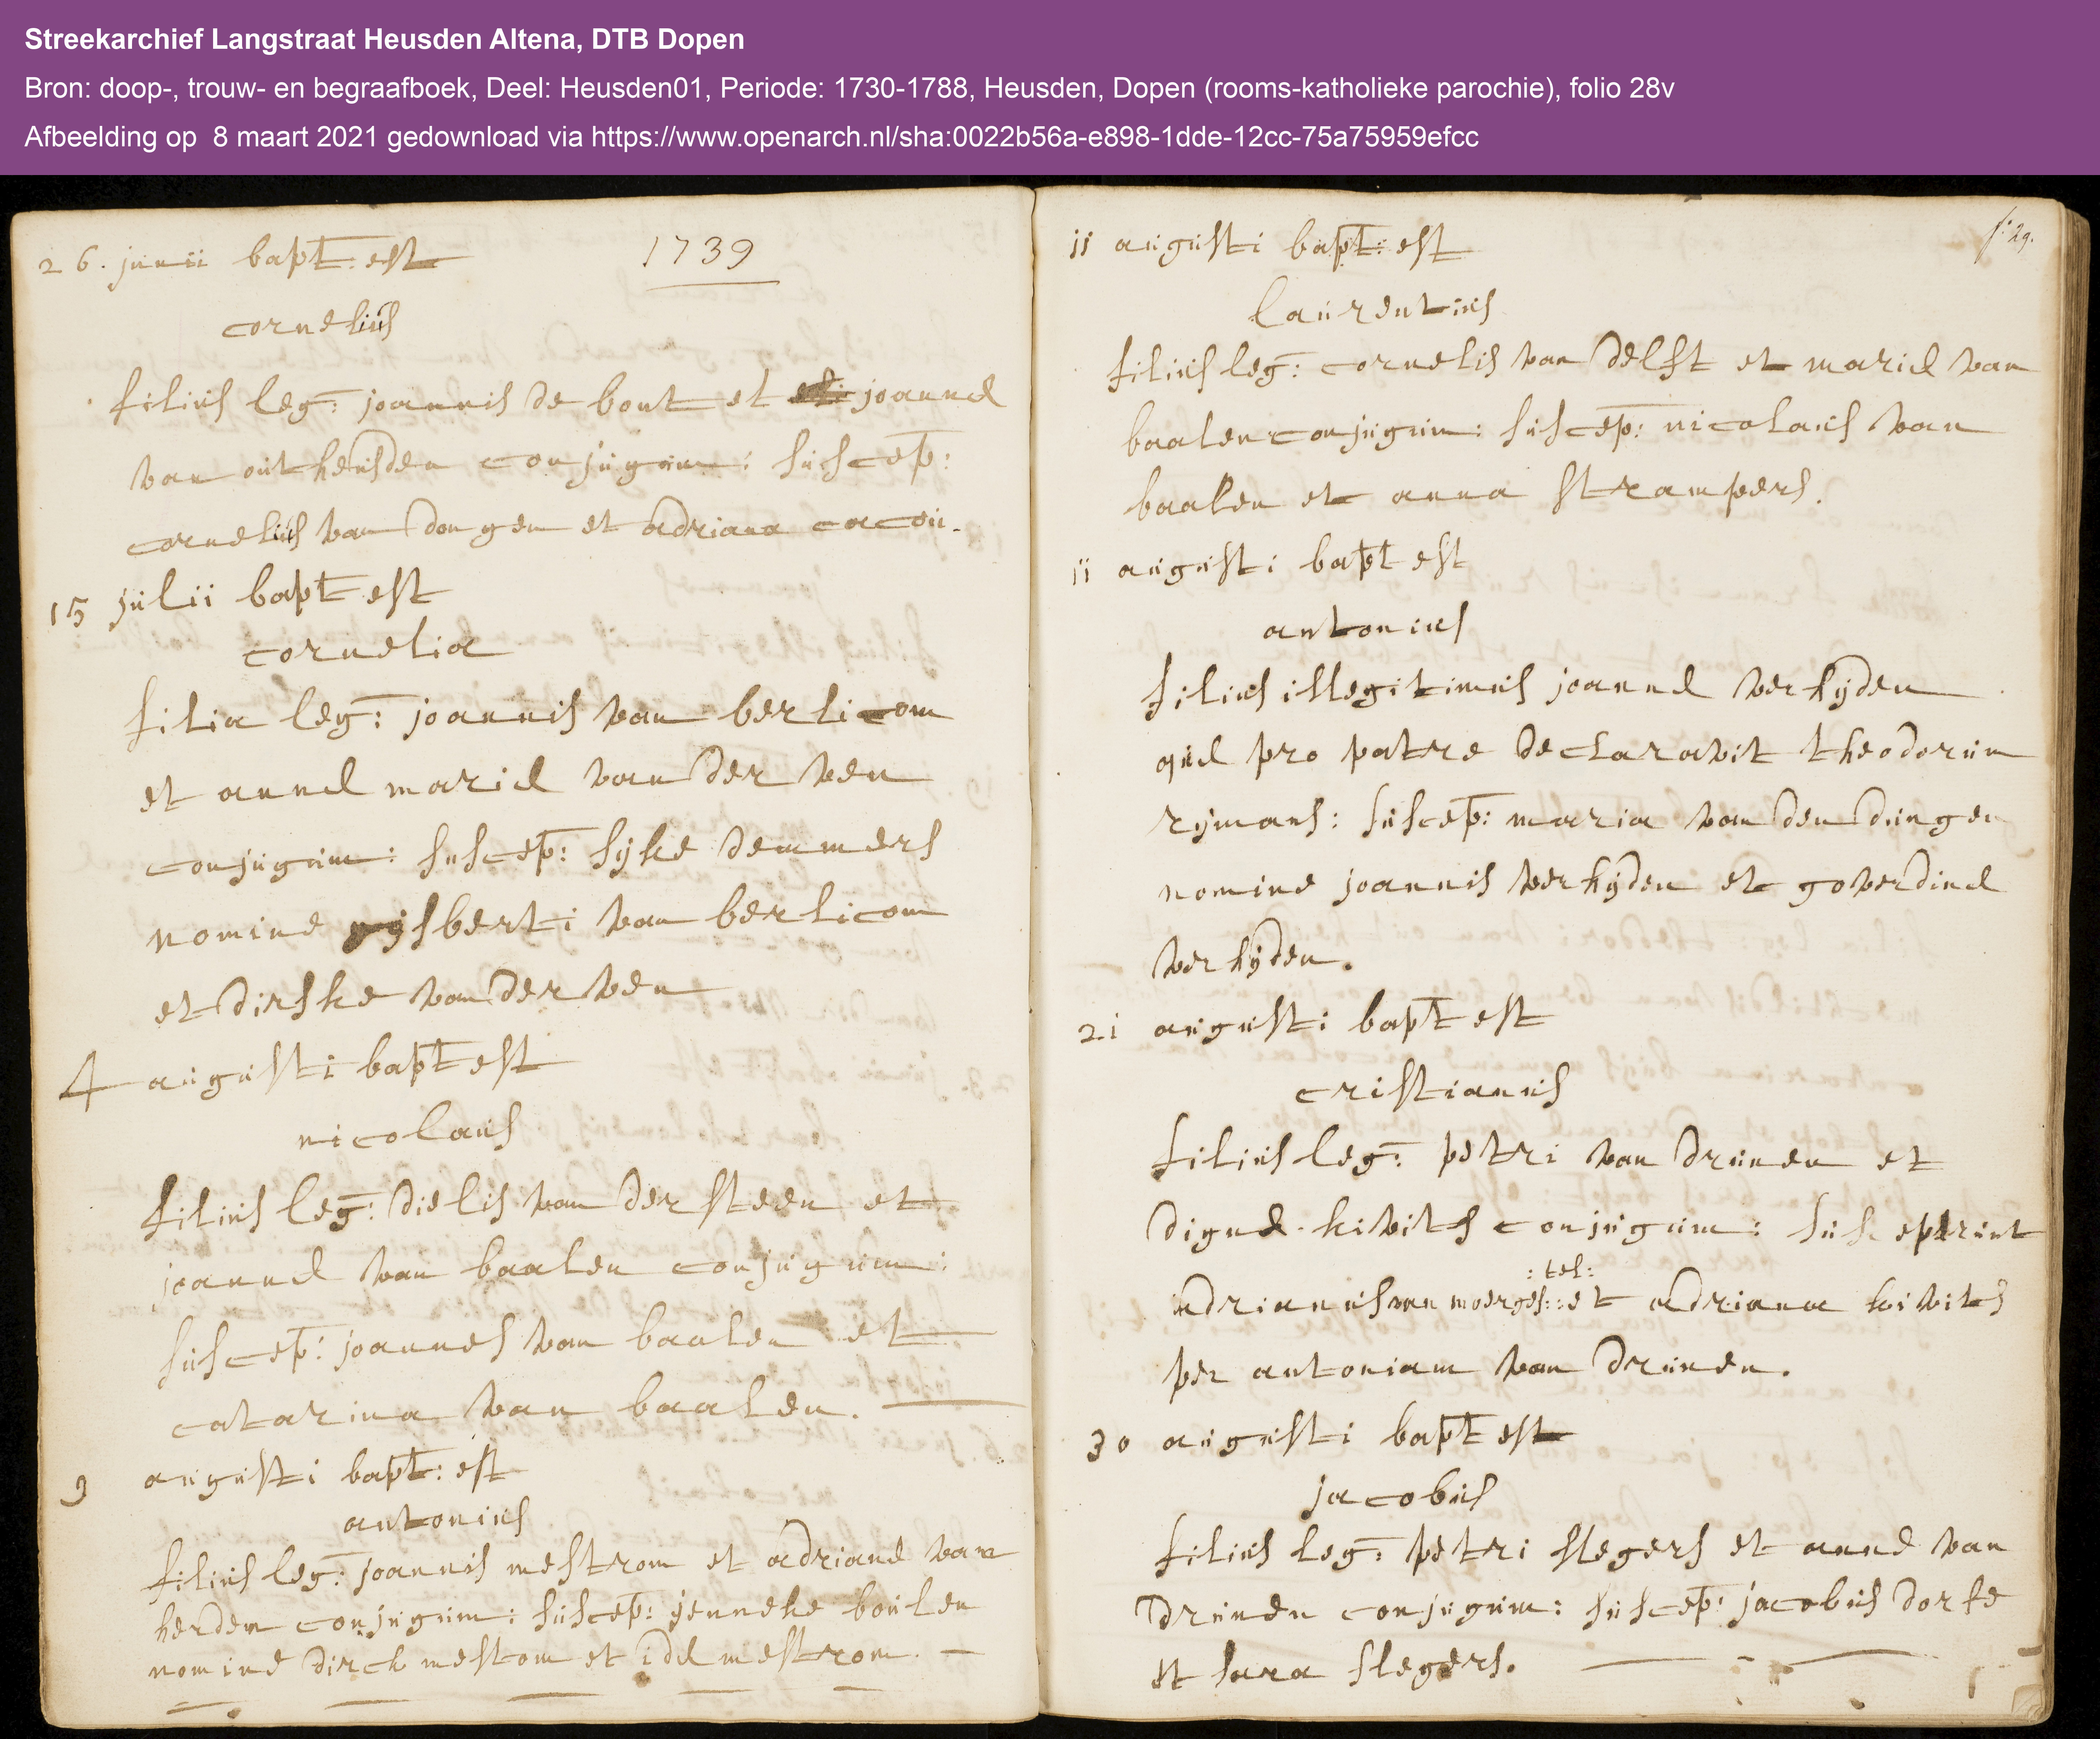 Streekarchief Langstraat Heusden Altena, DTB Dopen
Bron: doop-, trouw- en begraafboek, Deel: Heusden01, Periode: 1730-1788, Heusden, Dopen (rooms-katholieke parochie), folio 28v
Afbeelding op 8 maart 2021 gedownload via https://www.openarch.nl/sha:0022b56a-e898-1dde-12cc-75a75959efcc
1739
26. junii bapt: est
cornelius
filius leg: joannis de bont et joannae
van outheusden conjugum: suscep:
cornelius van dongen et adriana cacou.
15 julii bapt est
cornelia
filia leg: joannis van berlicom
et annae mariae van der ven
conjugum: suscep: sijke demmers
nomine gijsberti van berlicom
et dirske van der ven
4 augusti bapt est
nicolaus
filius leg: dielis van der steen et
joannae van baalen conjugum:
suscep: joannes van baalen et
catarina van baalen.
9 augusti bapt: est
antonius
filius leg: joannis mestrom et adrianae van
herden conjugum: suscep: jenneke boulen
nomine dirck mestom et idae mestrom.
f: 29.
11 augusti bapt: est
laurentius
filius leg: cornelis van delft et mariae van
baalen conjugum: suscep: nicolaus van
baalen et anna strampers.
11 augusti bapt est
antonius
filius illegitimus joannae verhijden
quae pro patre declaravit theodorum
rijmans: suscep: maria van den dungen
nomine joannis verhijden et goverdinae
verhijden.
21 augusti bapt est
cristianus
filius leg: petri van drunen et
dignae kivits conjugum: susceperunt
: tel:
adrianus van moerges:: et adriana kivits
per antoniam van drunen.
30 augusti bapt est
jacobus
filius leg: petri slegers et annae van
drunen conjugum: suscep: jacobus dorfe
et sara slegers.